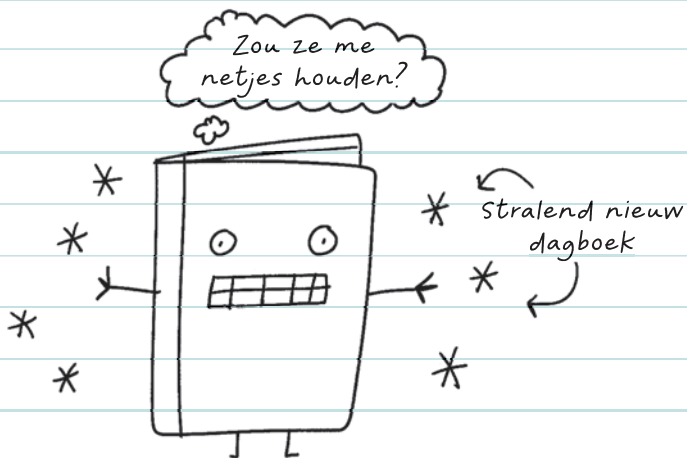 Zou ze me
netjes houden?
Stralend nieuw
dagboek